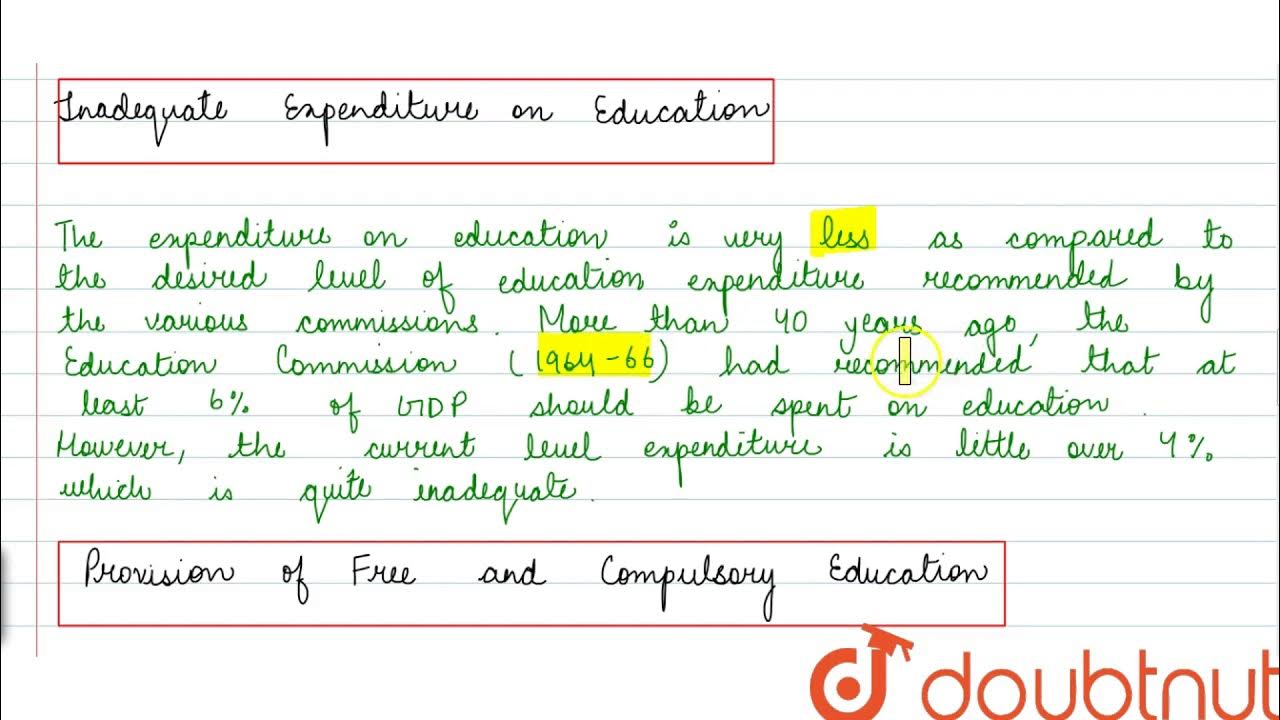 Inadequate Expenditure on Education
The expenditure on education is very less as compared to
the desired level of education expenditure recommended by
the various commissions. More than 40 years ago, the
Education Commission (1964-66) had recommended that at
least 6% of GDP should be spent on education.
However, the current level expenditure is little over 4%
which is quite inadequate.
Provision of Free and Compulsory Education
doubtnut